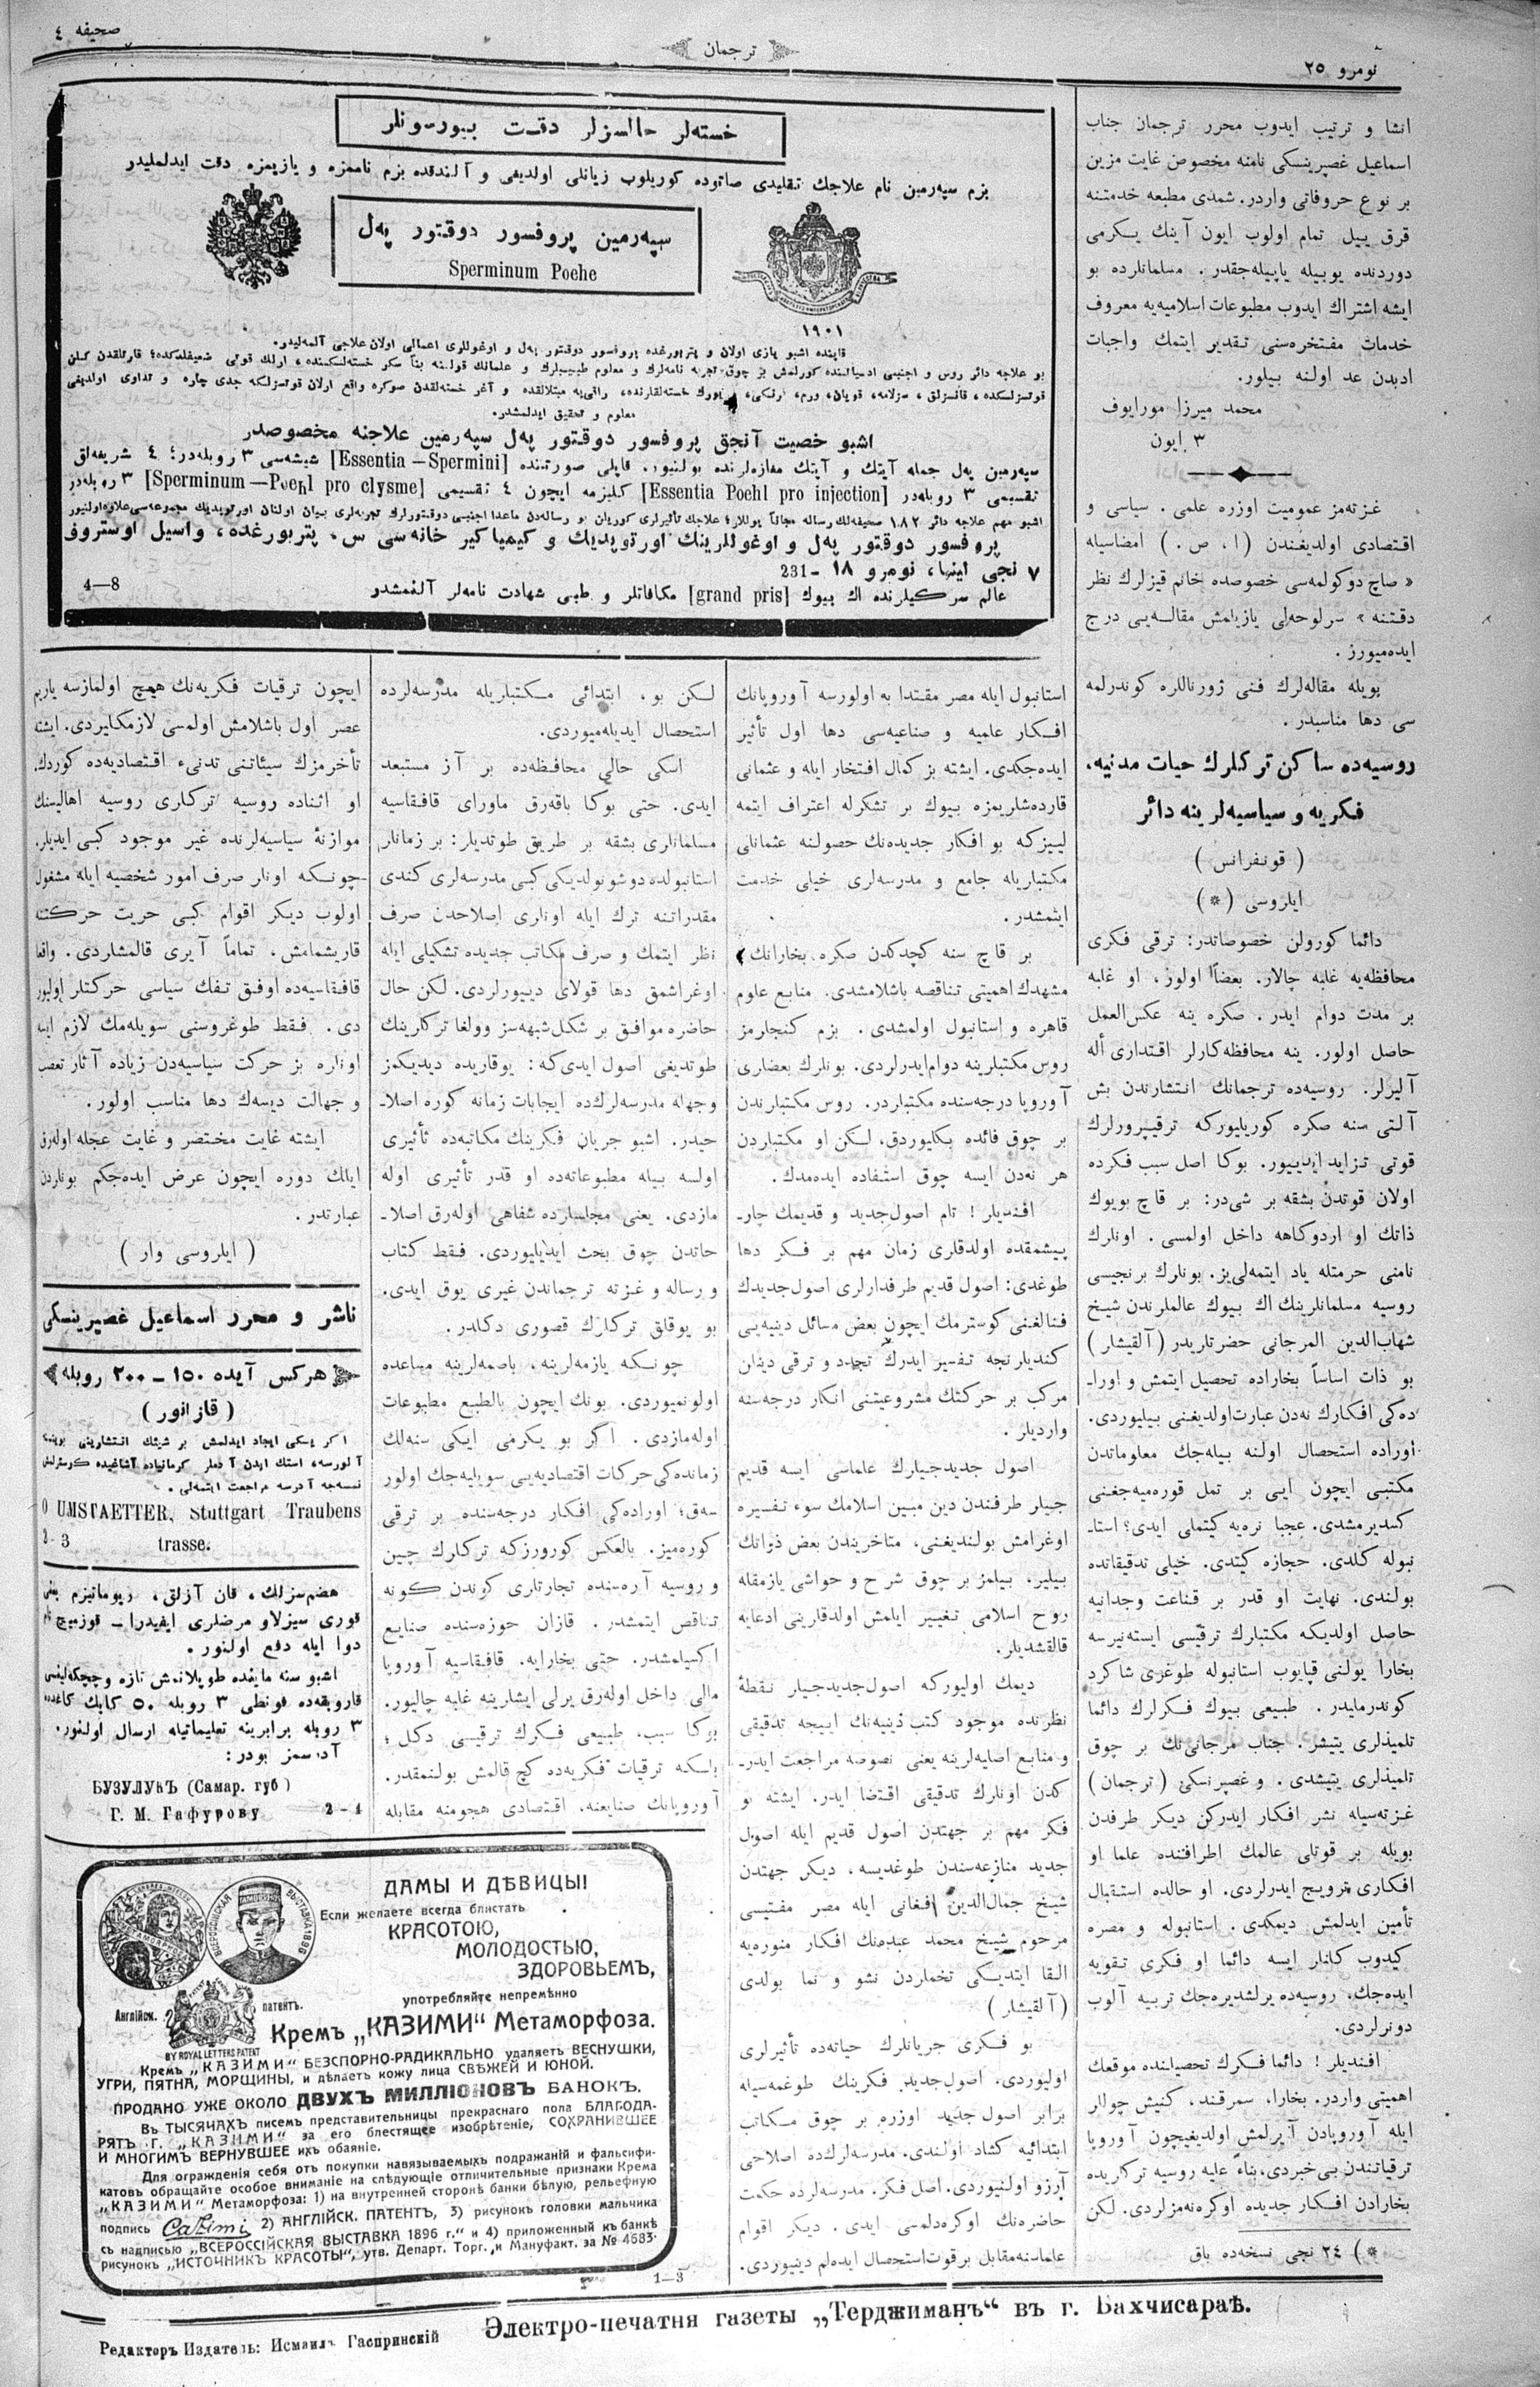 نومرو ٢٥
ترجمان
صحیفه ٤
انشا و ترتیب ایدوب محرر ترجمان جناب
اسماعیل غصپرینسکی نامنه مخصوص غایت مزین
بر نوع حروفاتی واردر. شمدی مطبعه خدمتنه
قرق ییل تمام اولوب ایون آینك یکرمی
دوردنده یوبیله یاپیله‌جقدر. مسلمانلرده بو
ایشه اشتراك ایدوب مطبوعات اسلامیه‌یه معروف
خدمات مفتخره‌سنی تقدیر ایتمك واجبات
ادبدن عد اولنه بیلور.
محمد میرزا مورایوف
٣ ایون
غزته‌مز عمومیت اوزره علمی. سیاسی و
اقتصادی اولدیغندن (ا. ص.) امضاسیله
«صاچ دوکولمه‌سی خصوصده خانم قیزلرك نظر
دقتنه» سرلوحه‌لی یازیلمش مقاله‌یی درج
ایده‌میورز.
بویله مقاله‌لرك فنی ژورناللره کوندرلمه
سی دها مناسبدر.
روسیه‌ده ساکن ترکلرك حیات مدنیه،
فکریه و سیاسیه‌لرینه دائر
(قونفرانس)
ایلروسی (*)
دائما کورولن خصوصاتدر: ترقی فکری
محافظه‌یه غلبه چالار. بعضاً اولوز، او غلبه
بر مدت دوام ایدر. صکره ینه عکس‌العمل
حاصل اولور. ینه محافظه‌کارلر اقتداری أله
آلیرلر. روسیه‌ده ترجمانك انتشارندن بش
آلتی سنه صکره کوریلیورکه ترقیپرورلرك
قوتی تزاید ایدییور. بوکا اصل سبب فکرده
اولان قوتدن بشقه بر شی‌در: بر قاچ بویوك
ذاتك او اردوکاهه داخل اولمسی. اونلرك
نامنی حرمتله یاد ایتمه‌لی‌یز. بونلرك برنجیسی
روسیه مسلمانلرینك اك بیوك عالملرندن شیخ
شهاب‌الدین المرجانی حضرتلریدر (آلقیشلر)
بو ذات اساساً بخاراده تحصیل ایتمش و اورا-
ده‌کی افکارك نه‌دن عبارت اولدیغنی بیلیوردی.
اوراده استحصال اولنه بیله‌جك معلوماتدن
مکتبی ایچون ایی بر تمل قوره‌میه‌جغنی
کسدیرمشدی. عجبا نره‌یه کیتملی ایدی؟ استا-
نبوله کلدی. حجازه کیتدی. خیلی تدقیقاتده
بولندی. نهایت او قدر بر قناعت وجدانیه
حاصل اولدیکه مکتبلرك ترقیسی ایسته‌نیرسه
بخارا یولنی قپایوب استانبوله طوغری شاکرد
کوندرملیدر. طبیعی بیوك فکرلرك دائما
تلمیذلری یتیشر. جناب مرجانی‌نك بر چوق
تلمیذلری یتیشدی. و غصپرنسکی (ترجمان)
غزته‌سیله نشر افکار ایدرکن دیکر طرفدن
بویله بر قوتلی عالمك اطرافنده علما او
افکاری ترویج ایدرلردی. او حالده استقبال
تأمین ایدلمش دیمکدی. استانبوله و مصره
کیدوب کلنلر ایسه دائما او فکری تقویه
ایده‌جك، روسیه‌ده یرلشدیره‌جك تربیه آلوب
دونرلردی.
افندیلر! دائما فکرك تحصیلنده موقعك
اهمیتی واردر. بخارا، سمرقند، کنیش چوللر
ایله آوروپادن آیرلمش اولدیغیچون آوروپا
ترقیاتندن بی‌خبردی، بناءً علیه روسیه ترکلریده
بخارادن افکار جدیده اوکره‌نه‌مزلردی. لکن
*) ٢٤ نجی نسخه‌ده باق
خسته‌لر حالسزلر دقت بیورسونلر
بزم سپه‌رمین نام علاجك تقلیدی صاتوده کوریلوب زیانلی اولدیغی و آلندقده بزم نامه‌مزه و یازیمزه دقت ایدلملیدر
سپه‌رمین پروفسور دوقتور په‌ل
Sperminum Poehe
١٩٠١
قاپنده اشبو یازی اولان و پتربورغده پروفسور دوقتور په‌ل و اوغوللری اعمالی اولان علاجی آلمه‌لیدر.
معلوم و تحقیق ایدلمشدر.
اشبو خصیت آنجق پروفسور دوقتور په‌ل سپه‌رمین علاجنه مخصوصدر
سپه‌رمین په‌ل جمله آپتك و آپتك مغازه‌لرنده بولنیور. قاپلی صورتنده [Essentia—Spermini] شیشه‌سی ٣ روبله‌در؛ ٤ شریفه‌لق
تقسیمی ٣ روبله‌در [Essentia Poehl pro injection] کلیزمه ایچون ٤ تقسیمی [Sperminum—Poehl pro clysme] ٣ روبله‌در
پروفسور دوقتور په‌ل و اوغوللرینك اورتوپدیك و کیمیاکیر خانه‌سی س. پتربورغده، واسیل اوستروف
٧ نجی لینیا، نومرو ١٨ - 231
عالم سرکیلرنده اك بیوك [grand pris] مکافاتلر و طبی شهادت نامه‌لر آلنمشدر
4—8
استانبول ایله مصر مقتدا به اولورسه آوروپانك
افکار علمیه و صناعیه‌سی دها اول تأثیر
ایده‌جکدی. ایشته بز کمال افتخار ایله و عثمانی
قارده‌شلریمزه بیوك بر تشکرله اعتراف ایتمه
لی‌یزکه بو افکار جدیده‌نك حصولنه عثمانلی
مکتبلریله جامع و مدرسه‌لری خیلی خدمت
ایتمشدر.
بر قاچ سنه کچدکدن صکره بخارانك،
مشهدك اهمیتی تناقصه باشلامشدی. منابع علوم
قاهره و استانبول اولمشدی. بزم کنجلرمز
روس مکتبلرینه دوام ایدرلردی. بونلرك بعضلری
آوروپا درجه‌سنده مکتبلردر. روس مکتبلرندن
بر چوق فائده بکلیوردق، لکن او مکتبلردن
هر نه‌دن ایسه چوق استفاده ایده‌مدك.
افندیلر! تام اصول جدید و قدیمك چار-
پیشمقده اولدقلری زمان مهم بر فکر دها
طوغدی: اصول قدیم طرفدارلری اصول جدیدك
فنالغنی کوسترمك ایچون بعض مسائل دینیه‌یی
کندیلرنجه تفسیر ایدرك تجدد و ترقی دینان
مرکب بر حرکتك مشروعیتنی انکار درجه‌سنه
واردیلر.
اصول جدیدجیلرك علماسی ایسه قدیم
جیلر طرفندن دین مبین اسلامك سوء تفسیره
اوغرامش بولندیغنی، متاخریندن بعض ذواتك
بیلیر. بیلمز بر چوق شرح و حواشی یازمقله
روح اسلامی تغییر ایلمش اولدقلرینی ادعایه
قالقشدیلر.
دیمك اولیورکه اصول جدیدجیلر نقطهٔ
نظرنده موجود کتب دینیه‌نك اییجه تدقیقی
و منابع اصلیه‌لرینه یعنی نصوصه مراجعت ایدر-
کدن اونلرك تدقیقی اقتضا ایدر. ایشته بو
فکر مهم بر جهتدن اصول قدیم ایله اصول
جدید منازعه‌سندن طوغدیسه، دیکر جهتدن
شیخ جمال‌الدین افغانی ایله مصر مفتیسی
مرحوم شیخ محمد عبده‌نك افکار منوره‌یه
القا ایتدیکی تخملردن نشو و نما بولدی
(آلقیشلر)
بو فکری جریانلرك حیاته‌ده تأثیرلری
اولیوردی. اصول جدید فکرینك طوغمه‌سیله
برابر اصول جدید اوزره بر چوق مکاتب
ابتدائیه کشاد اولندی. مدرسه‌لرك‌ده اصلاحی
آرزو اولنیوردی. اصل فکر. مدرسه‌لرده حکمت
حاضره‌نك اوکره‌دلمسی ایدی. دیکر اقوام
علماسنه مقابل بر قوت استحصال ایده‌لم دینیوردی.
لکن بو، ابتدائی مکتبلریله مدرسه‌لرده
استحصال ایدیله‌میوردی.
اسکی حالی محافظه‌ده بر آز مستبعد
ایدی. حتی بوکا باقه‌رق ماورای قافقاسیه
مسلمانلری بشقه بر طریق طوتدیلر: بر زمانلر
استانبولده دوشونولدیکی کبی مدرسه‌لری کندی
مقدراتنه ترك ایله اونلری اصلاحدن صرف
نظر ایتمك و صرف مکاتب جدیده تشکیلی ایله
اوغراشمق دها قولای دییورلردی. لکن حال
حاضره موافق بر شکل شبهه‌سز وولغا ترکلرینك
طوتدیغی اصول ایدی‌که: یوقاریده دیدیکمز
وجهله مدرسه‌لرك‌ده ایجابات زمانه کوره اصلا-
حیدر. اشبو جریان فکرینك مکاتبه‌ده تأثیری
اولسه بیله مطبوعاته‌ده او قدر تأثیری اوله
مازدی. یعنی مجلسلرده شفاهی اوله‌رق اصلا-
حاتدن چوق بحث ایدیلیوردی. فقط کتاب
و رساله و غزته ترجماندن غیری یوق ایدی.
بو یوقلق ترکلرك قصوری دکلدر.
چونکه یازمه‌لرینه، باصمه‌لرینه مساعده
اولونمیوردی. بونك ایچون بالطبع مطبوعات
اوله‌مازدی. اگر بو یکرمی ایکی سنه‌لك
زمانده‌کی حرکات اقتصادیه‌یی سویلیه‌جك اولور
سه‌ق؛ اوراده‌کی افکار درجه‌سنده بر ترقی
کوره‌میز. بالعکس کورورزکه ترکلرك چین
و روسیه آره‌سنده تجارتلری کوندن کونه
تناقص ایتمشدر. قازان حوزه‌سنده صنایع
اکسلمشدر. حتی بخارایه، قافقاسیه آوروپا
مالی داخل اوله‌رق یرلی ایشلرینه غلبه چالیور.
بوکا سبب، طبیعی فکرك ترقیسی دکل؛
بلکه ترقیات فکریه‌ده کچ قالمش بولنمقدر.
آوروپانك صنایعنه، اقتصادی هجومنه مقابله
ایچون ترقیات فکریه‌نك هیچ اولمازسه یاریم
عصر اول باشلامش اولمسی لازمکلیردی. ایشته
تأخرمزك سیئاتنی تدنیء اقتصادیه‌ده کوردك.
او اثناده روسیه ترکلری روسیه اهالیسنك
موازنهٔ سیاسیه‌لرنده غیر موجود کبی ایدیلر.
چونکه اونلر صرف امور شخصیه ایله مشغول
اولوب دیکر اقوام کبی حریت حرکتنه
قاریشمامش، تماماً آیری قالمشلردی. واقعا
قافقاسیه‌ده اوفق تفك سیاسی حرکتلر اولیور
دی. فقط طوغروسنی سویله‌مك لازم ایسه
اونلره بز حرکت سیاسیه‌دن زیاده آثار تعصب
و جهالت دیسه‌ك دها مناسب اولور.
ایشته غایت مختصر و غایت عجله اوله‌رق
ایلك دوره ایچون عرض ایده‌جکم بونلردن
عبارتدر.
(ایلروسی وار)
ناشر و محرر اسماعیل غصپرینسکی
هرکس آیده ١٥٠ – ٢٠٠ روبله
(قازانور)
O UMSTAETTER, Stuttgart Traubens
trasse.
2-3
هضم‌سزلك، قان آزلق، ریوماتیزم یعنی
قوری سیزلاو مرضلری ایفیدرا – قوزمیچ نام
دوا ایله دفع اولنور.
اشبو سنه مایده طوپلانمش تازه و چچکه‌لیغی
قاروبقه‌ده فونطی ٣ روبله ٥٠ کاپك کاغدده
٣ روبله برابرینه تعلیماتیله ارسال اولنور.
آدرسمز بودر:
БУЗУЛУКЪ (Самар. губ)
Г. М. Гафурову
2—4
ДАМЫ И ДѢВИЦЫ!
Если желаете всегда блистать
КРАСОТОЮ,
МОЛОДОСТЬЮ,
ЗДОРОВЬЕМЪ,
употребляйте непремѣнно
Англійск. патентъ.
BY ROYAL LETTERS PATENT
Кремъ „КАЗИМИ“ Метаморфоза.
Кремъ „КАЗИМИ“ БЕЗСПОРНО-РАДИКАЛЬНО удаляетъ ВЕСНУШКИ,
УГРИ, ПЯТНА, МОРЩИНЫ, и дѣлаетъ кожу лица СВѢЖЕЙ И ЮНОЙ.
ПРОДАНО УЖЕ ОКОЛО ДВУХЪ МИЛЛІОНОВЪ БАНОКЪ.
Въ ТЫСЯЧАХЪ писемъ представительницы прекраснаго пола БЛАГОДА-
РЯТЪ Г. „КАЗИМИ“ за его блестящее изобрѣтеніе, СОХРАНИВШЕЕ
И МНОГИМЪ ВЕРНУВШЕЕ ихъ обаяніе.
Для огражденія себя отъ покупки навязываемыхъ подражаній и фальсифи-
катовъ обращайте особое вниманіе на слѣдующіе отличительные признаки Крема
„КАЗИМИ“ Метаморфоза: 1) на внутренней сторонѣ банки бѣлую, рельефную
подпись Cazimi 2) АНГЛІЙСК. ПАТЕНТЪ, 3) рисунокъ головки мальчика
съ надписью „ВСЕРОССІЙСКАЯ ВЫСТАВКА 1896 г.“ и 4) приложенный къ банкѣ
рисунокъ „ИСТОЧНИКЪ КРАСОТЫ“, утв. Департ. Торг. и Мануфакт. за № 4683.
1—3
Редакторъ Издатель: Исмаилъ Гаспринскій
Электро-печатня газеты „Терджиманъ“ въ г. Бахчисараѣ.